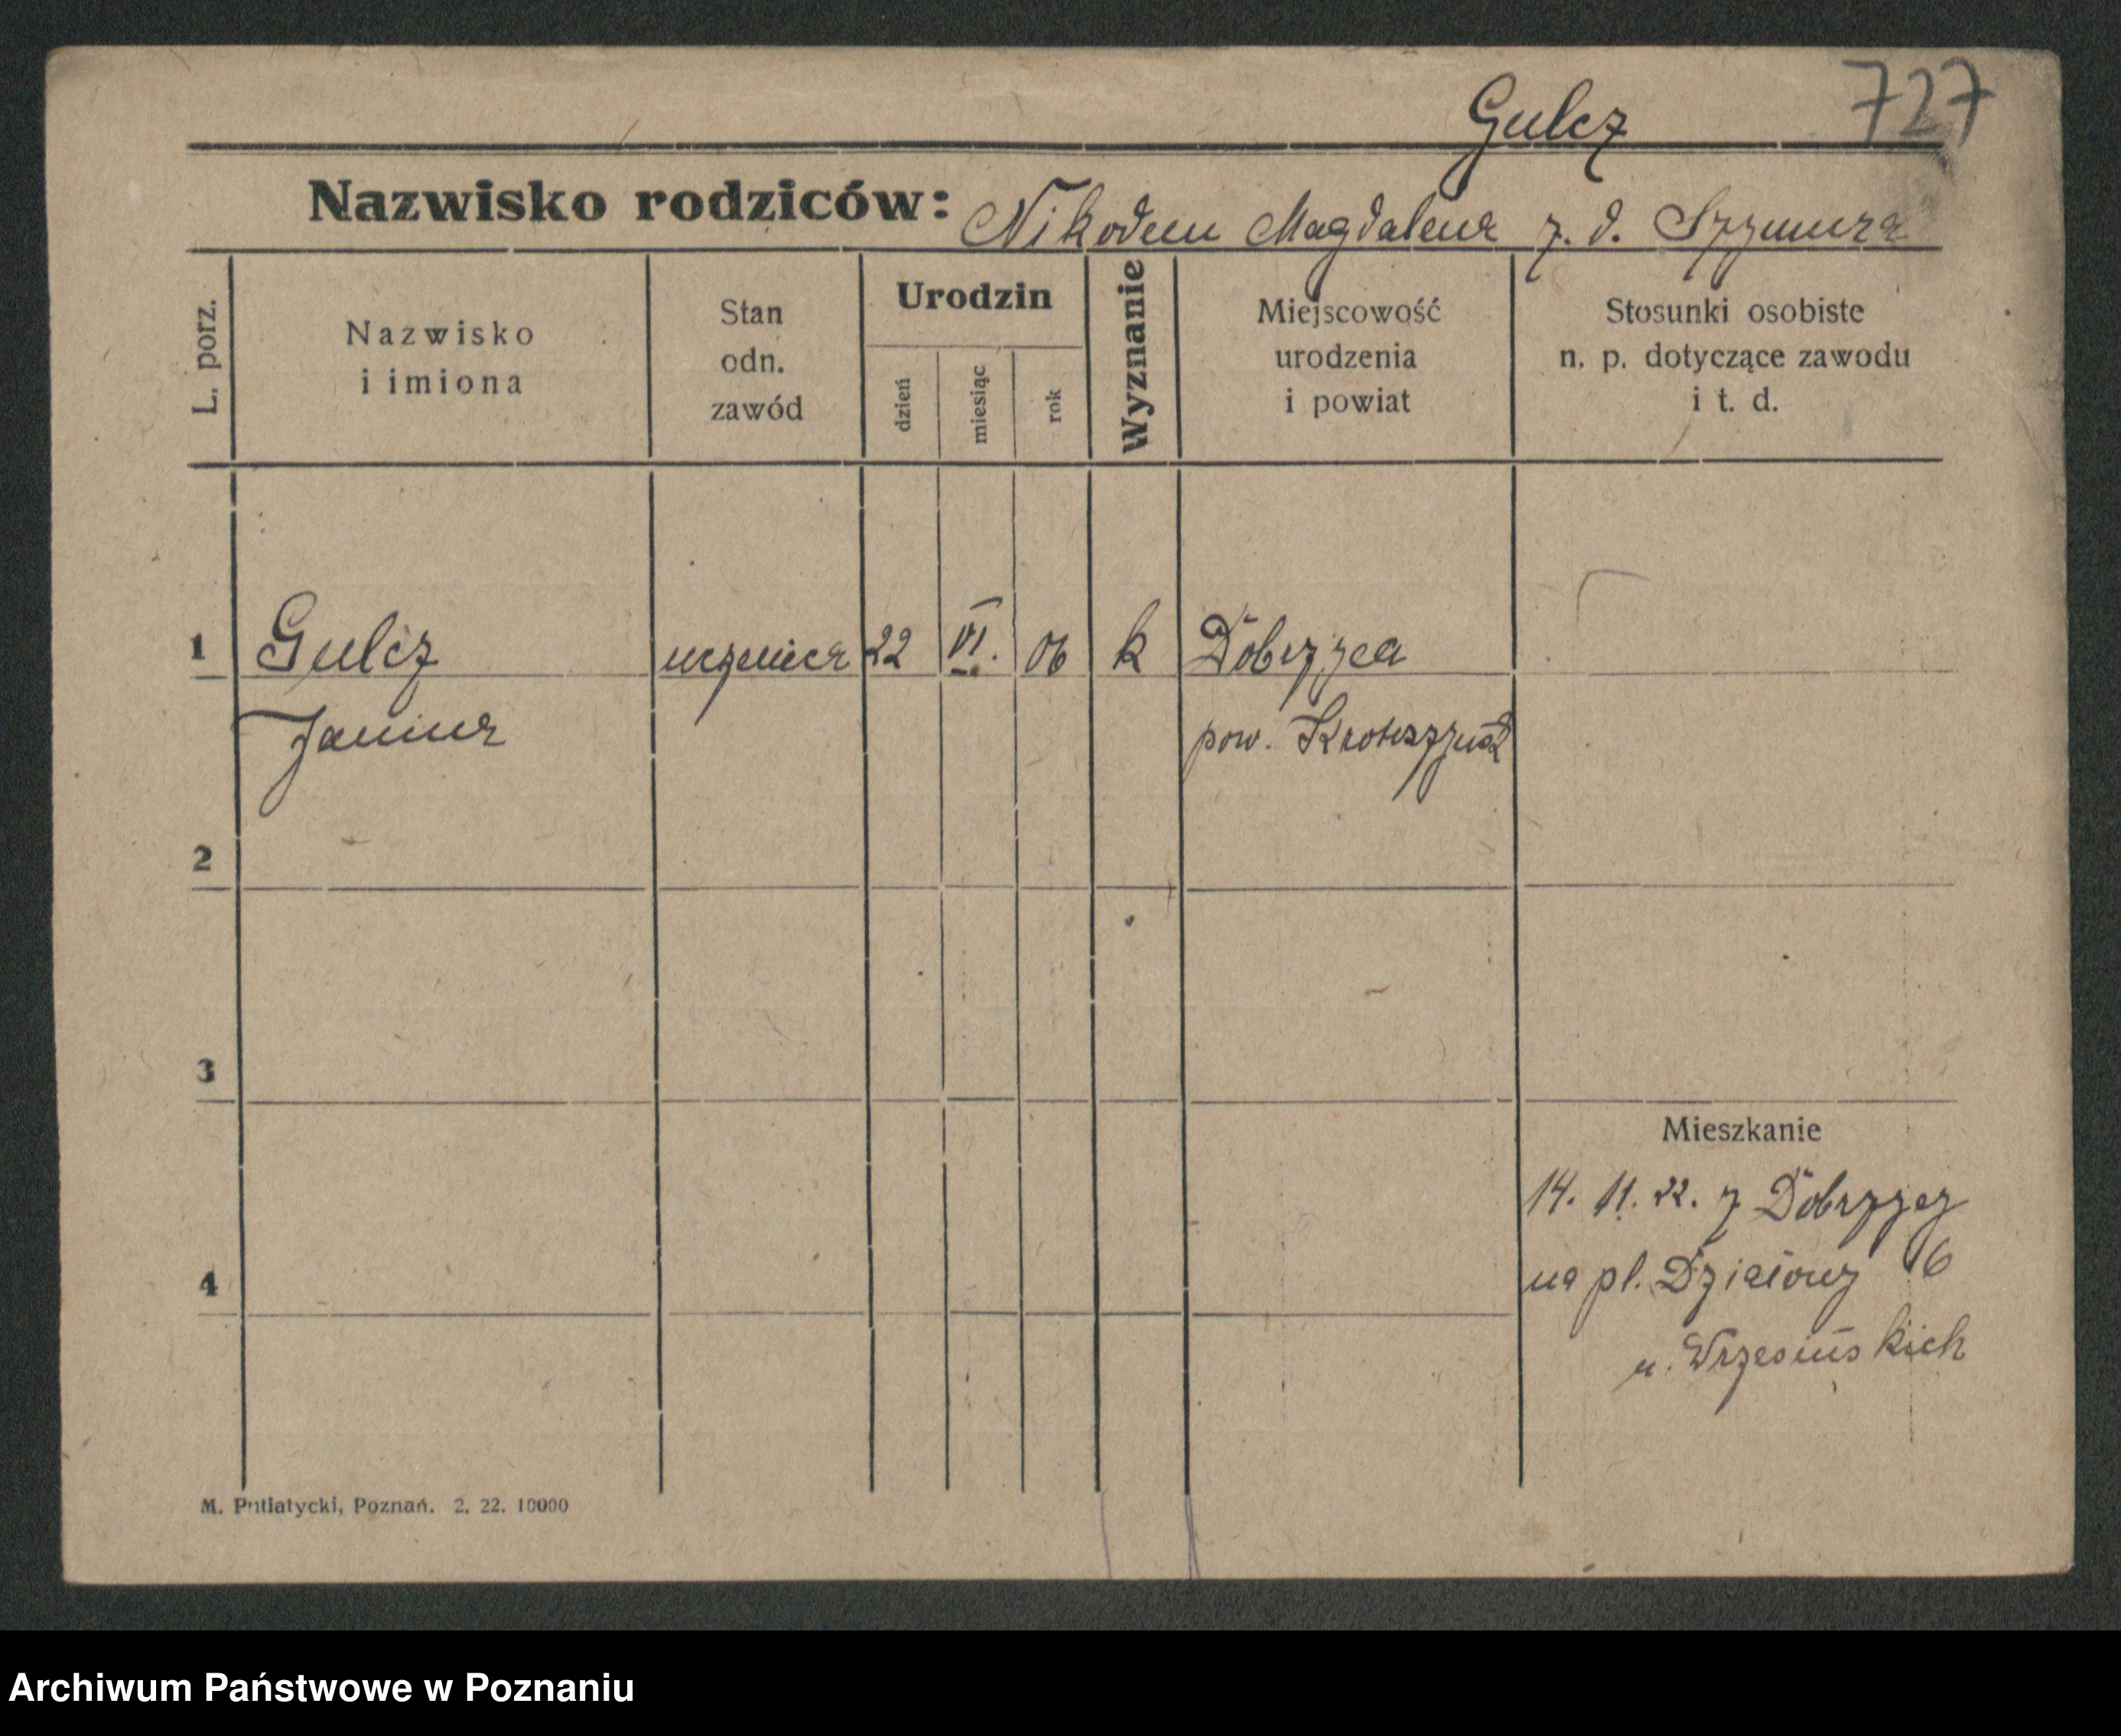 Gulcz 727
Nazwisko rodziców: Nikodem Magdalena z. d. Szymura
L. porz.
Nazwisko
i imiona
Stan
odn.
zawód
Urodzin
dzień
miesiąc
rok
Wyznanie
Miejscowość
urodzenia
i powiat
Stosunki osobiste
n. p. dotyczące zawodu
i t. d.
1 Gulcz uczenica 22 VI. 06 k Dobrzyca
Janina pow. Krotoszyn
2
3
Mieszkanie
14. 11. 22. z Dobrzycy
4 na pl. Działowy 6
u. Wrzesińskich
M. Putiatycki, Poznań. 2. 22. 10000
Archiwum Państwowe w Poznaniu